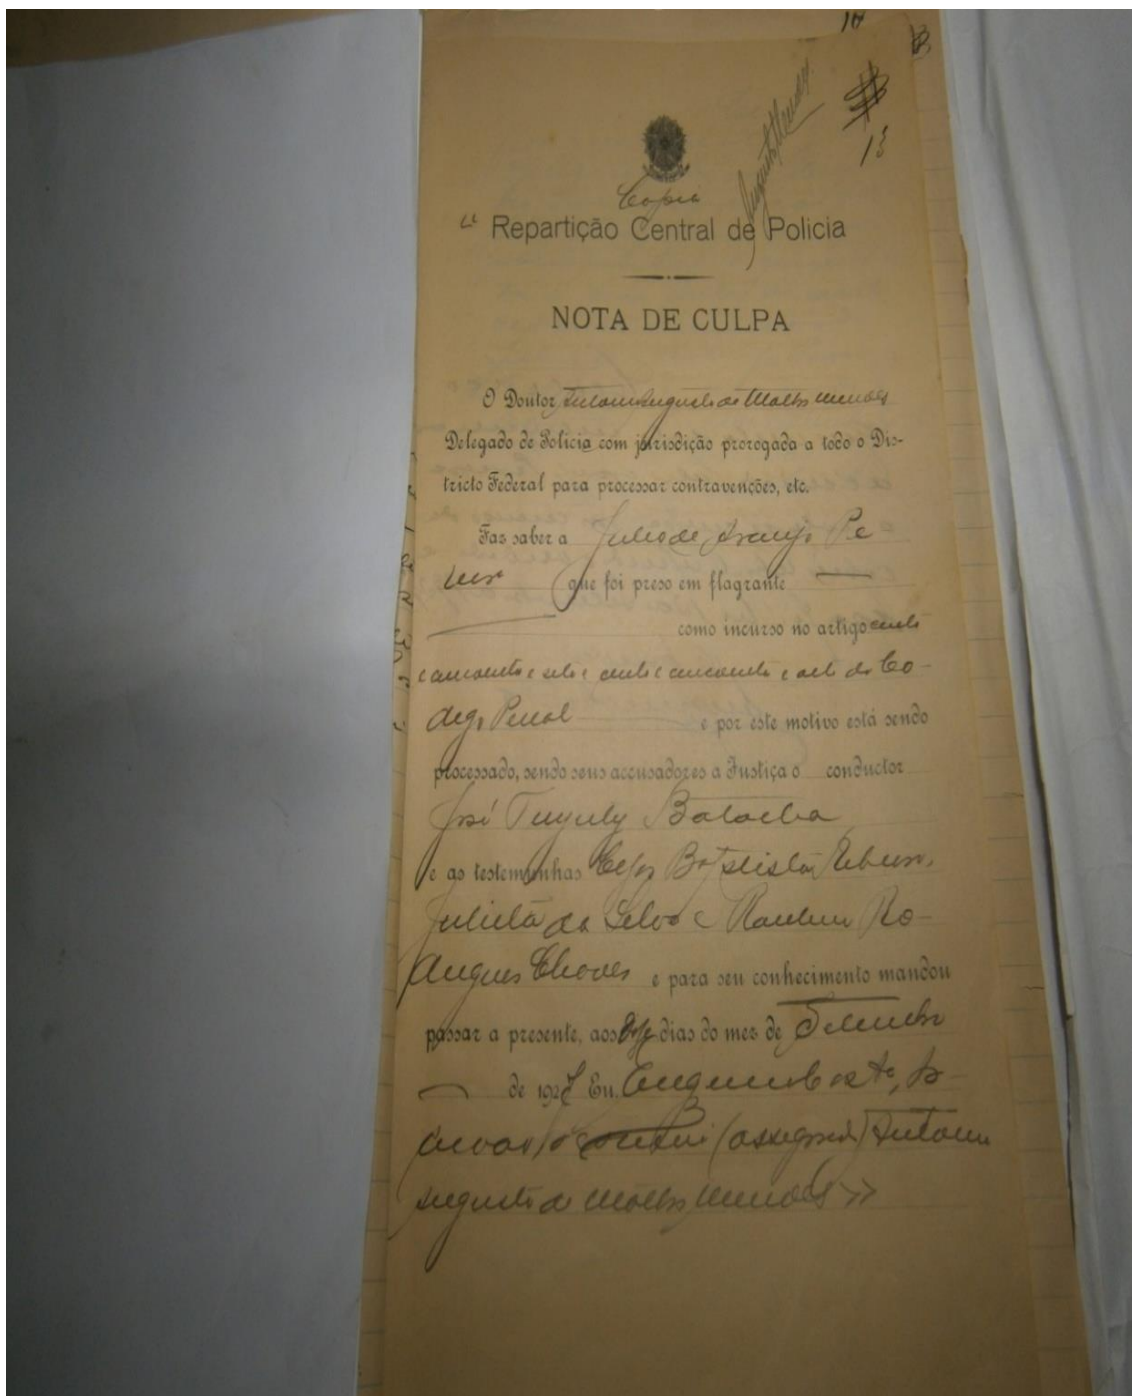 13
Copia
" Repartição Central de Policia
NOTA DE CULPA
O Doutor Antonio Augusto de Mattos Mendes
Delegado de Policia com jurisdição prorogada a todo o Dis-
tricto Federal para processar contravenções, etc.
Faz saber a Julio de Araujo Pe
que foi preso em flagrante —
— como incurso no artigo cento
e cincoenta e sete e cento e cincoenta e oito do Co-
digo Penal e por este motivo está sendo
processado, sendo seus accusadores a Justiça o conductor
José Tuyuty Batalha
e as testemunhas Baptista
Julieta da Silva e Ro-
drigues Chaves e para seu conhecimento mandou
passar a presente, aos dias do mez de Setembro
— de 1927 Eu, Costa, Es-
crivão, o (assignado) Antonio
Augusto de Mattos Mendes »